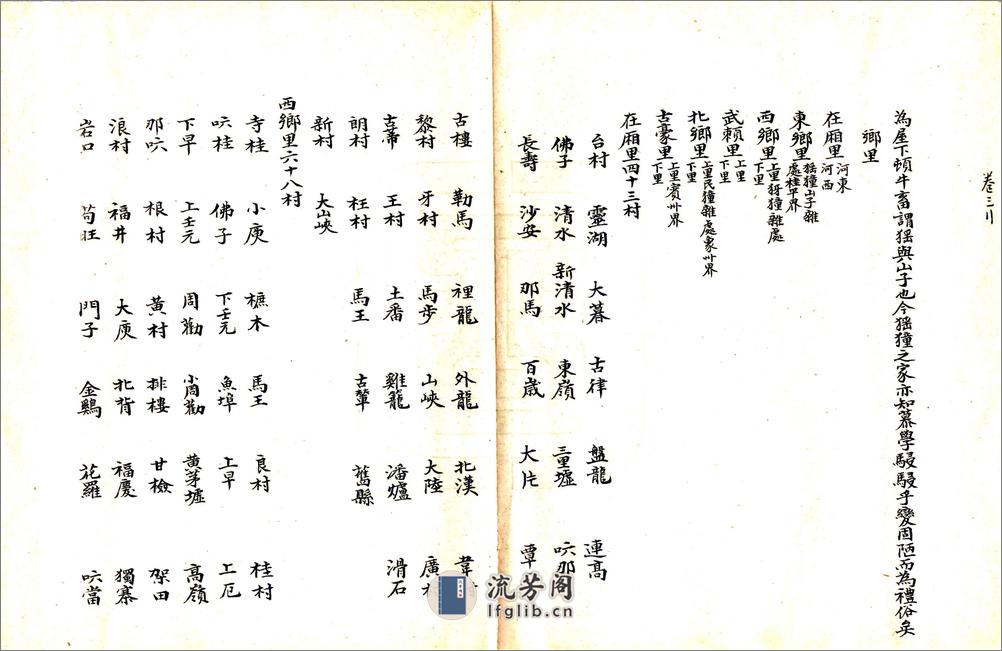 卷三
為屋下頓牛畜謂猺與山子也今猺獞之家亦知慕學駸駸乎變固陋而為禮俗矣
鄉里
在廂里 河東 河西
東鄉里 猺獞山子雜處桂平界
西鄉里 上里犽獞雜處 下里
武賴里 上里 下里
北鄉里 上里民獞雜處象州界 下里
古豪里 上里賓州界 下里
在廂里四十三村
台村 靈湖 大暮 古律 盤龍 連高
佛子 清水 新清水 東嶺 三重墟 吥那
長壽 沙安 那馬 百歲 大片 覃
古樓 勒馬 裡龍 外龍 北漢 韋
黎村 牙村 馬步 山峽 大陸 廣
古蒂 王村 土番 雞籠 潘爐 滑石
朗村 枉村 馬王 古輦 舊縣
新村 大山峽
西鄉里六十八村
寺桂 小庾 樜木 馬王 良村 桂村
吥桂 佛子 下壬元 魚埠 上早 上厄
下早 上壬元 周勸 小周勸 黄茅墟 高嶺
那吥 根村 黄村 排樓 甘檢 架田
浪村 福井 大庾 北背 福慶 獨寨
岩口 荀旺 門子 金鷄 花羅 吥當
流芳阁
lfglib.cn